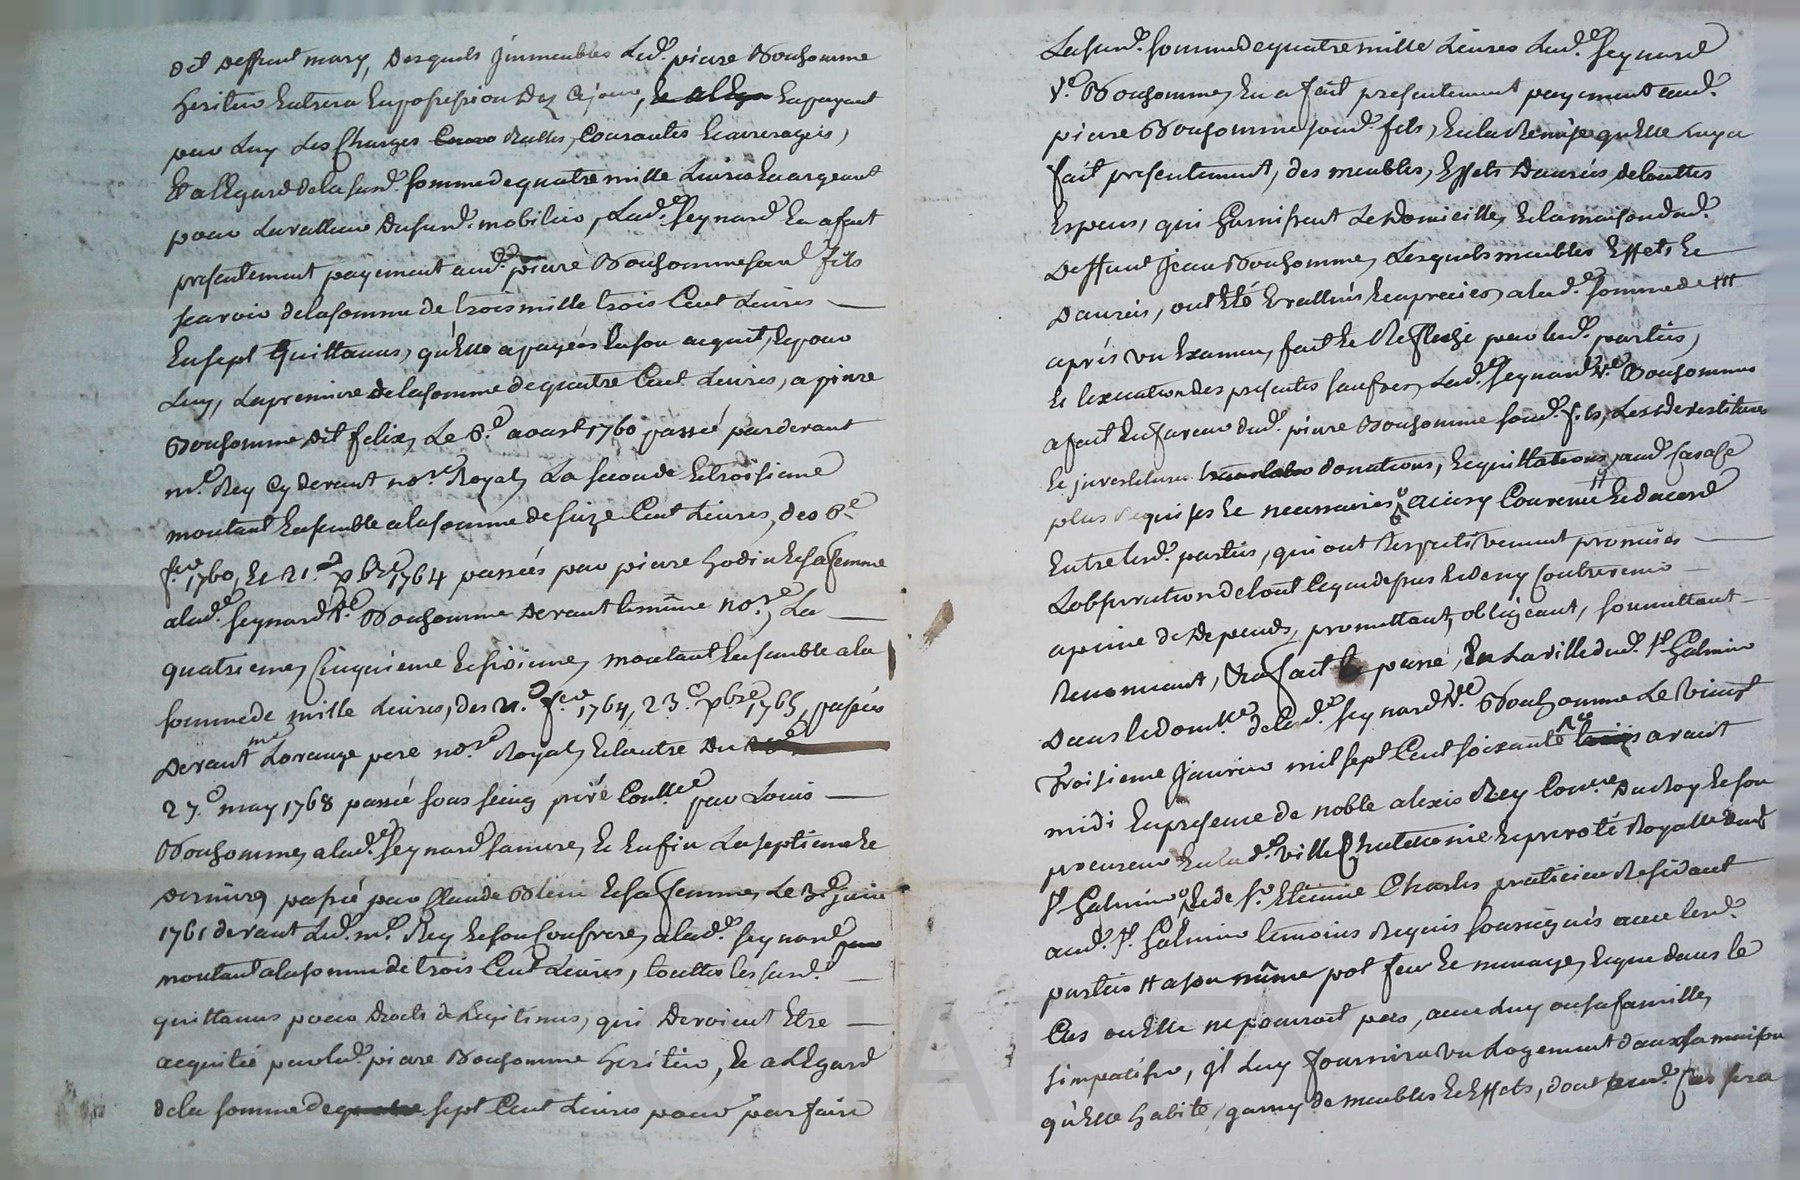 dit deffunt mary, desquels jmmeubles Led.e pierre Bonhomme
heritier Entrera En possession dez ce jour, Et allega En payant
par Luy Les Charges Couro Reelles, Courantes Et arreragés,
Et a l'Egard de la susd.e somme de quatre mille Livres En argent
pour La valleur du susd. mobilier, Lad.e Peynard En a fait
presentement payement aud. pierre Bonhomme son d. fils
scavoir de la somme de trois mille trois Cent Livres
En sept Quittances, qu'Elle a payées En son acquit, Et pour
Luy, La premiere de la somme de quatre Cent Livres, a pierre
Bonhomme dit felix, Le 6.e aoust 1760 passé pardevant
m.e Rey cy devant no.re Royal, La seconde Et troisieme
montant Ensemble a la somme de seize Cent Livres, des 6.e
f.er 1760, Et 21.e xbre 1764 passées par pierre hodin Et sa femme
a lad.e Peynard V.e Bonhomme devant le même no.re, La
quatrieme, Cinquieme Et sixieme, montant Ensemble a la
somme de mille Livres, des 21. f.er 1764, 23.e xbre 1765, passées
devant me Lorange pere no.re Royal, Et l'autre du
27.e may 1768 passé sous seing privé Conllé par Louis
Bonhomme, a lad.e Peynard sa mere, Et Enfin La septieme Et
derniere, passé par Claude Et sa femme, Le 3.e juin
1761 devant Led. m.e Rey Et son Confrere, a lad.e Peynard
montant a la somme de trois Cent Livres, touttes les susd.
quittances pour droits de Legitimes, qui devoient Etre
acquitté par led. pierre Bonhomme heritier, Et a l'Egard
de la somme de quatre sept Cent Livres pour parfaire
La susd. somme de quatre mille Livres Lad.e Peynard
V.e Bonhomme, En a fait presentement payement aud.
pierre Bonhomme son d. fils, En la Remise qu'Elle Luy a
fait presentement, des meubles, Effets Danrées, de touttes
Especes, qui Garnissent Le domicille, Et la maison dud.
deffunt Jean Bonhomme, Lesquels meubles Effets Et
Danrées, ont Eté Evallués Et apreciés, a lad.e somme de ///
aprés un Examen, fait Et Reflechi par lesd. parties,
Et l'execution des presentes sauf res, Lad.e Peynard V.e Bonhomme
a fait En faveur dud. pierre Bonhomme son d. fils, Les devestitures
Et jnvestitures donations, Et quittations, aud. cas a ce
plus Requises Et necessaires, ainsy Convenu Et dacord
Entre lesd. parties, qui ont Respectivement promis
L'observation de tout ce que dessus Et de ny Contrevenir
a peine de depends, promettant, obligeant, soumettant
Renonceant, &ra fait & passé, En La ville dud. S.t Galmier
Dans le dom.lle de lad.e Peynard V.e Bonhomme Le vingt
troisieme Janvier mil sept Cent soixante avant
midi En presence de noble alexis Rey Con.er du Roy Et son
procureur En lad.e ville Chatelenie Et prevoté Royalle dud.
S.t Galmier, Et de s.r Etienne Charles praticien Residant
aud. S.t Galmier temoins Requis soussignés avec lesd.
parties // a son même pot feu Et menage, Et que dans le
Cas ou Elle ne pourroit pas, avec Luy ou sa famille,
simpatiser, jl Luy fournira un Logement dans sa maison
qu'Elle habite, garny de meubles Et Effets, dont aud. Cas sera